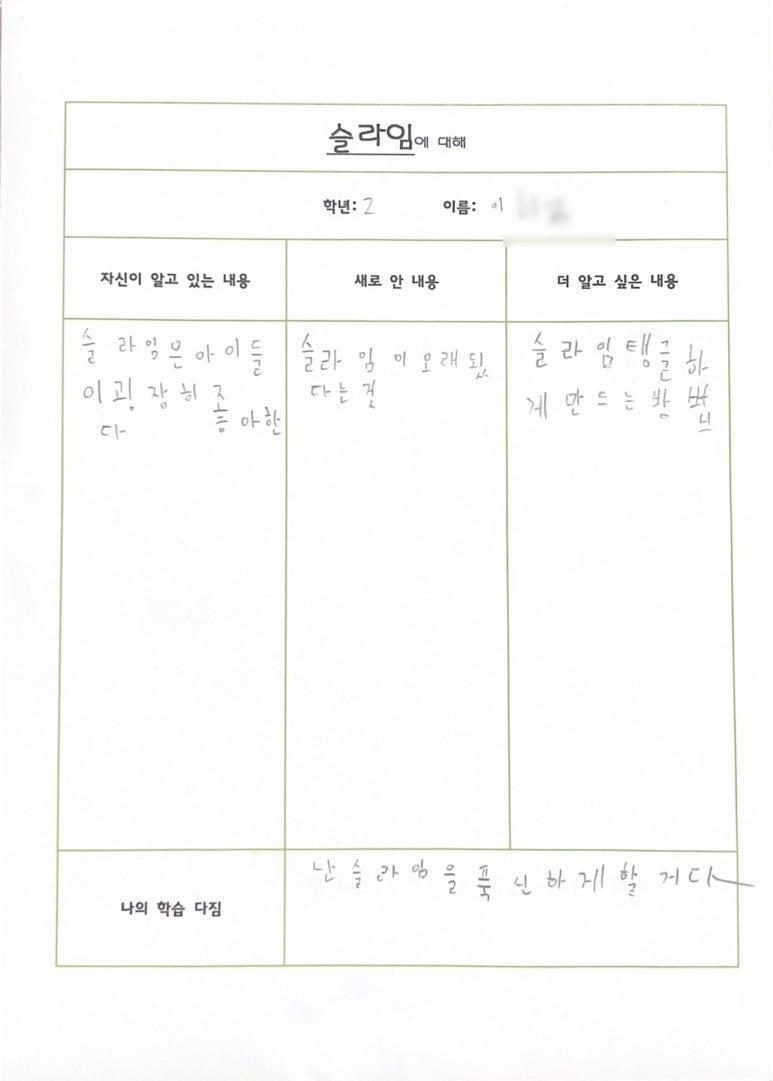 슬라임에 대해
학년: 2 이름: 이
자신이 알고 있는 내용
새로 안 내용
더 알고 싶은 내용
슬라임은아이들
이굉장히좋아한
다
슬라임이오래됬
다는것
슬라임탱글하
게만드는방뻐
나의 학습 다짐
난슬라임을푹신하게할거다